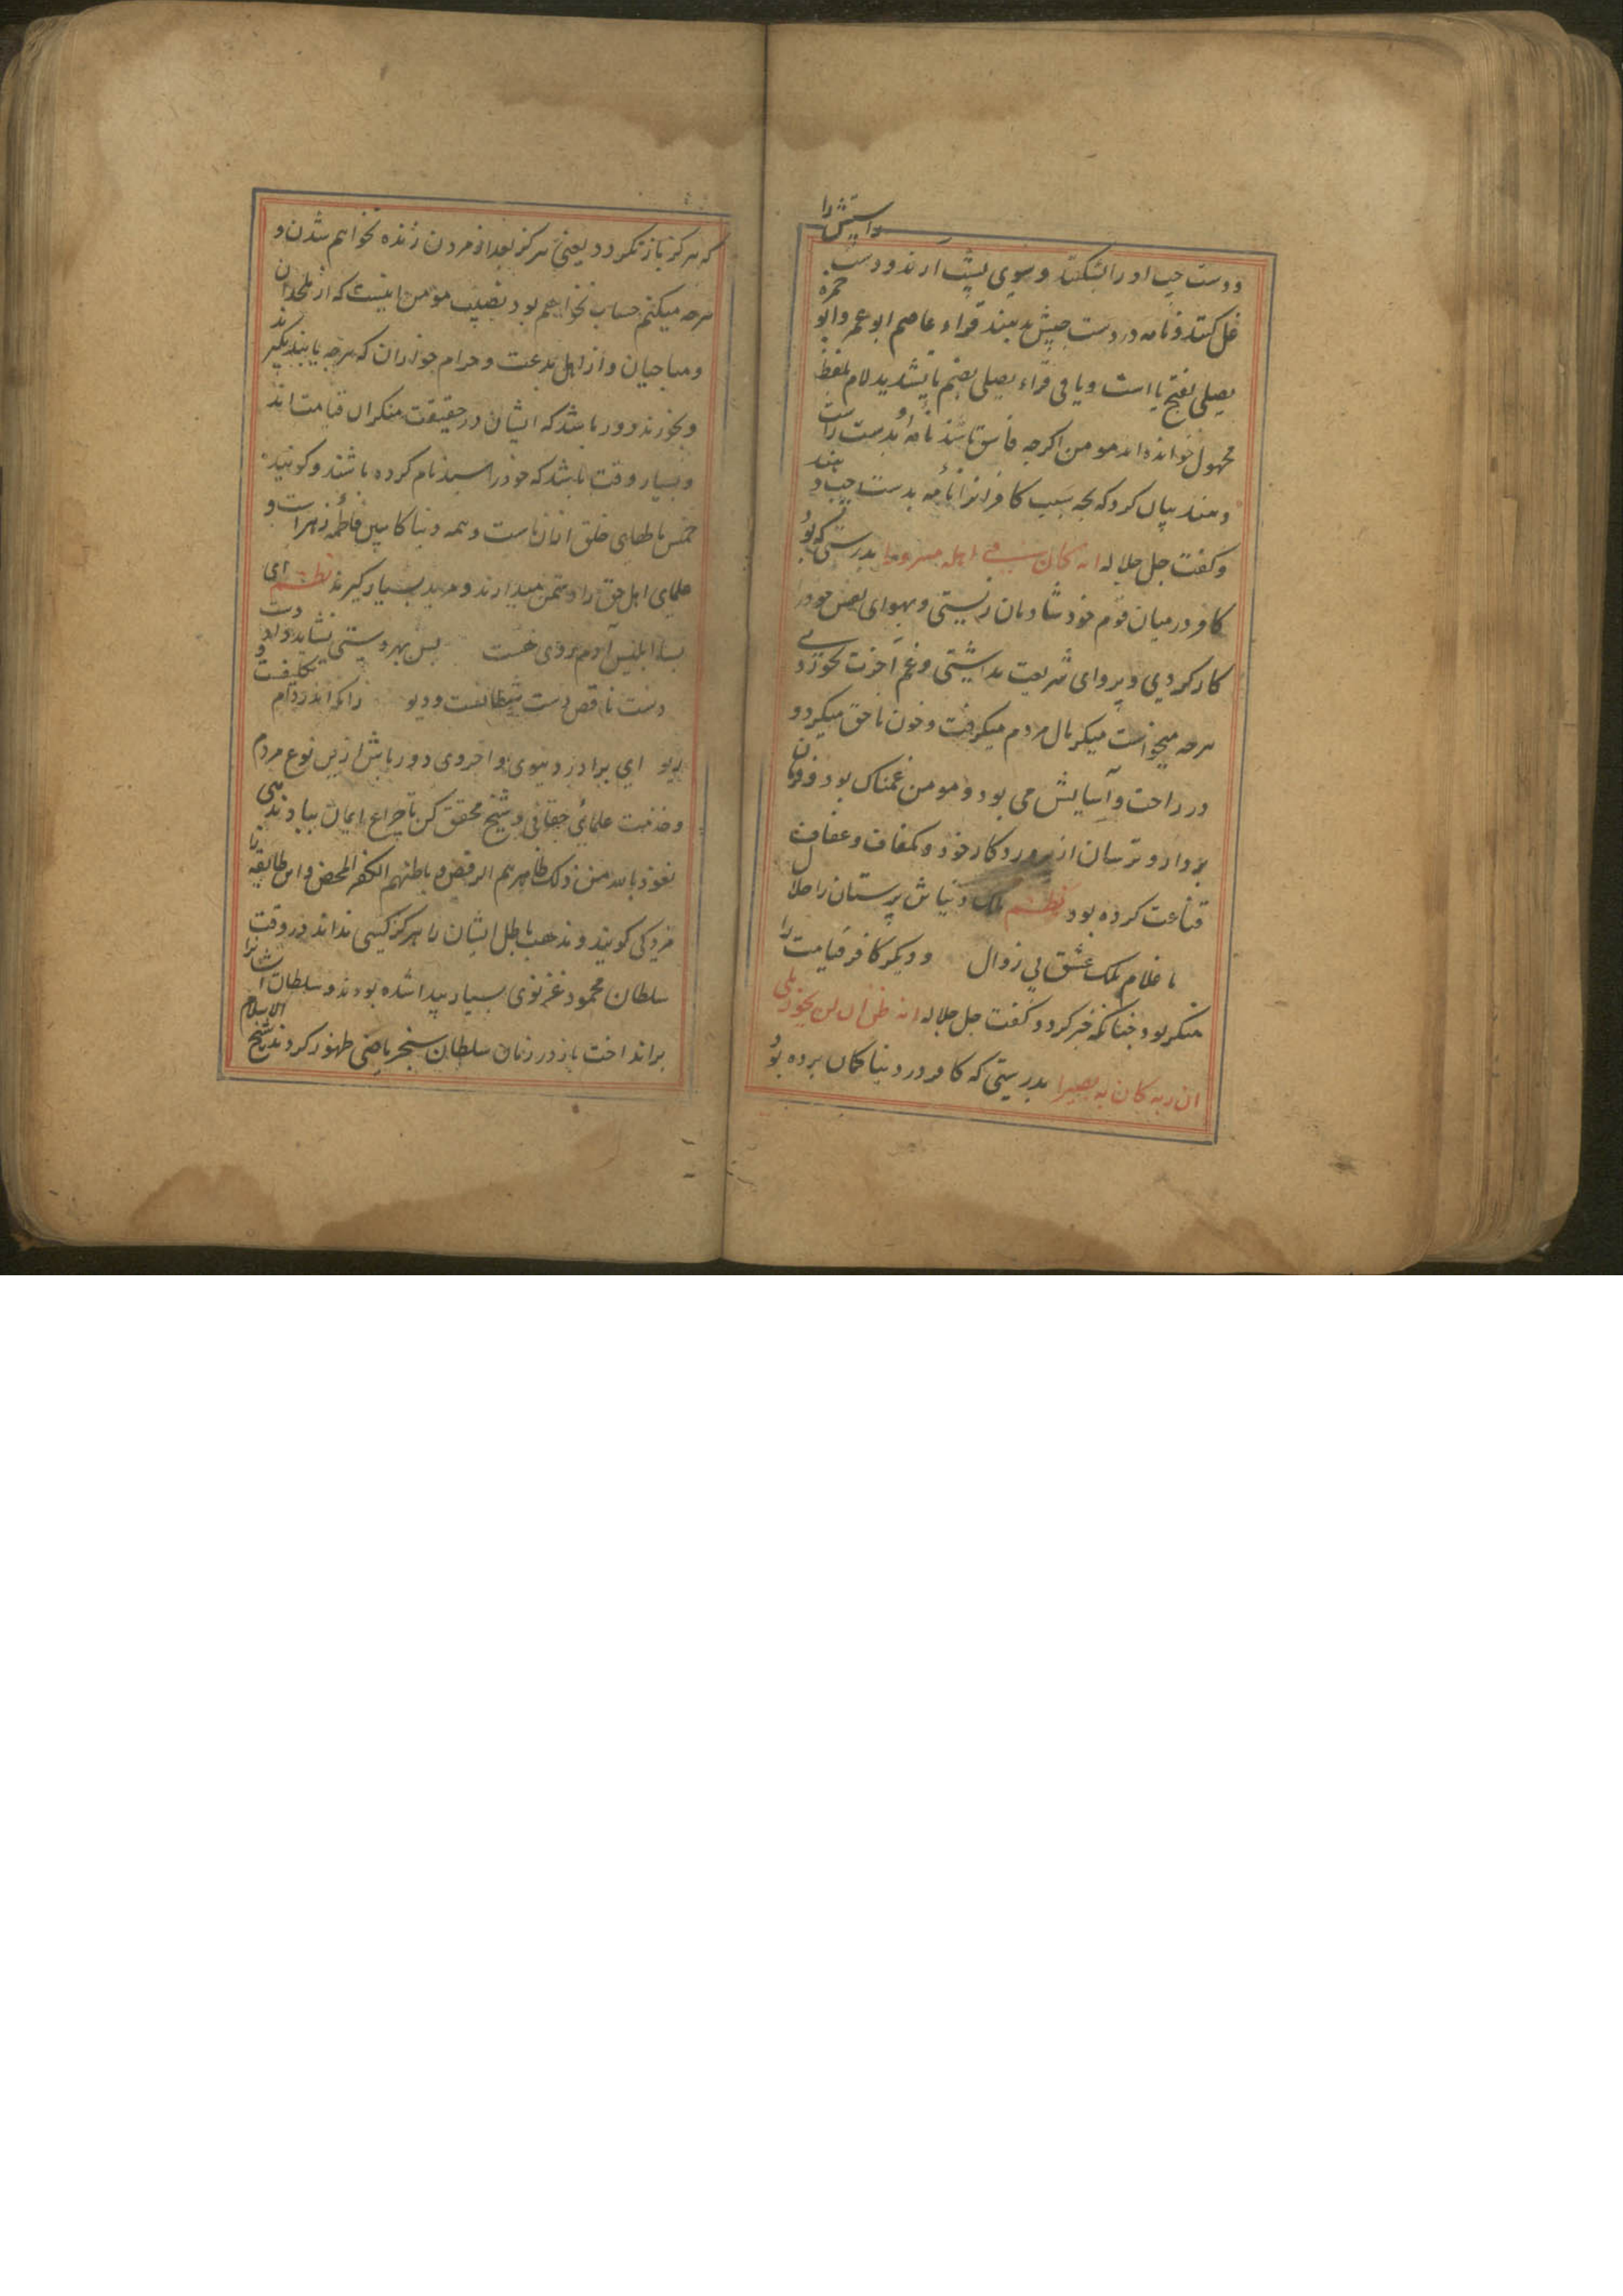 ودست چپ او را بشکنند و بسوی پشت ارند و دست راستش را
غل کنند و نامه در دست چپش بدهند قراء عاصم ابو عمر و ابو حمزه
یصلی بفتح یا است و باقی قراء یصلی بضم یا بتشدید لام بلفظ
مجهول خوانده اند مومن اکرچه فاسق باشد نامه او بدست راست
دهند بیان کرد که بچه سبب کافرانرا نامه بدست چپ دهند
و کفت جل جلاله انه کان فی اهله مسرورا بدرستی که بود
کافر در میان قوم خود شادمان زیستی و بهوای نفس خود را
کار کردی و پروای شریعت نداشتی و غم آخرت نخوردی
هرچه میخواست میکرد مال مردم میکرفت و خون ناحق میکرد و
در راحت و آسایش می بود و مومن غمناک بود و فرمان
بردار و ترسان از پروردکار خود و بکفاف و عفاف
قناعت کرده بود نظم ملک دنیاش پرستان را حلال
ما غلام ملک عشق بی زوال و دیکر کافر قیامت را
منکر بود چنانکه خبر کرد و کفت جل جلاله انه ظن ان لن یحور بلی
ان ربه کان به بصیرا بدرستی که کافر در دنیا کمان برده بود
که هرکز باز نکردد یعنی هرکز بعد از مردن زنده نخواهم شدن و
هرچه میکنم حساب نخواهم بود نصیب مومن اینست که از ملحدان
و مباحیان و از اهل بدعت و حرام خواران که هرچه یابند بکیرند
و بخورند دور باشد که ایشان در حقیقت منکران قیامت اند
و بسیار وقت باشد که خود را سید نام کرده باشند و کویند
خمس باطهای خلق ازان ماست و همه دنیا کابین فاطمه زهراست و
علمای اهل حق را دشمن میدارند و مرید بسیار کیرند نظم ای
بسا ابلیس آدم روی هست پس بهر دستی نشاید داد دست
دست ناقص دست شیطانست و دیو زانکه اندر دام تکلیفست و
ریو ای برادر دنیوی و اخروی دور باش ازین نوع مردم
و خدمت علمای حقانی و شیخ محقق کن تا چراغ ایمان بباد ندهی
نعوذ بالله من ذلک ظاهرهم الرفض و باطنهم الکفر المحض و این طایفه را
مزدکی کویند و مذهب باطل ایشان را هرکز کسی نداند در وقت
سلطان محمود غزنوی بسیار پیدا شده بودند و سلطان ایشانرا
برانداخت باز در زمان سلطان سنجر ماضی ظهور کردند شیخ الاسلام